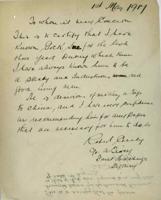 1st May 1901
To whom it may Concern
This is to certify that I have
known Gock for the last
three years During which time
I have always known him to be
a steady and Industrious and
good living man.
He is desirous of making a trip
to China, and I have every confidence
in recommending him for any Papers
that are necessary for him to
Robert